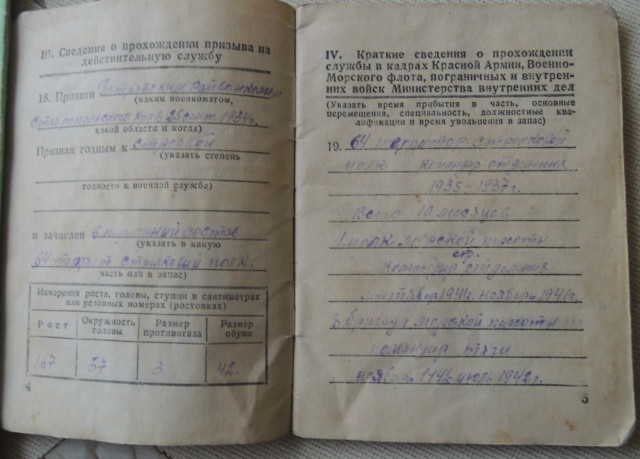 III. Сведения о прохождении призыва на
действительную службу
18. Призван Петровским райвоенкоматом
(каким военкоматом,
25 сент. 1934г.
какой области и когда)
Признан годным к строевой
(указать степень
годности к военной службе)
и зачислен в личный состав
(указать в какую
64 стрелковый полк.
часть или в запас)
Измерения роста, головы, ступни в сантиметрах
или условных номерах (ростовках)
Рост Окружность головы Размер противогаза Размер обуви
167 57 3 42.
4
IV. Краткие сведения о прохождении
службы в кадрах Красной Армии, Военно-
Морского флота, пограничных и внутрен-
них войск Министерства внутренних дел
(Указать время прибытия в часть, основные
перемещения, специальность, должностные ква-
лификации и время увольнения в запас)
19. 64 стрелковой
полк командир отделения
1935-1937г.
Всего 10 месяцев
1 полк морской пехоты
стр.
командир отделения
сентябрь 1941г. ноябрь 1941г.
3 бригада морской пехоты
командир
ноябрь 1941-июль 1942г.
5